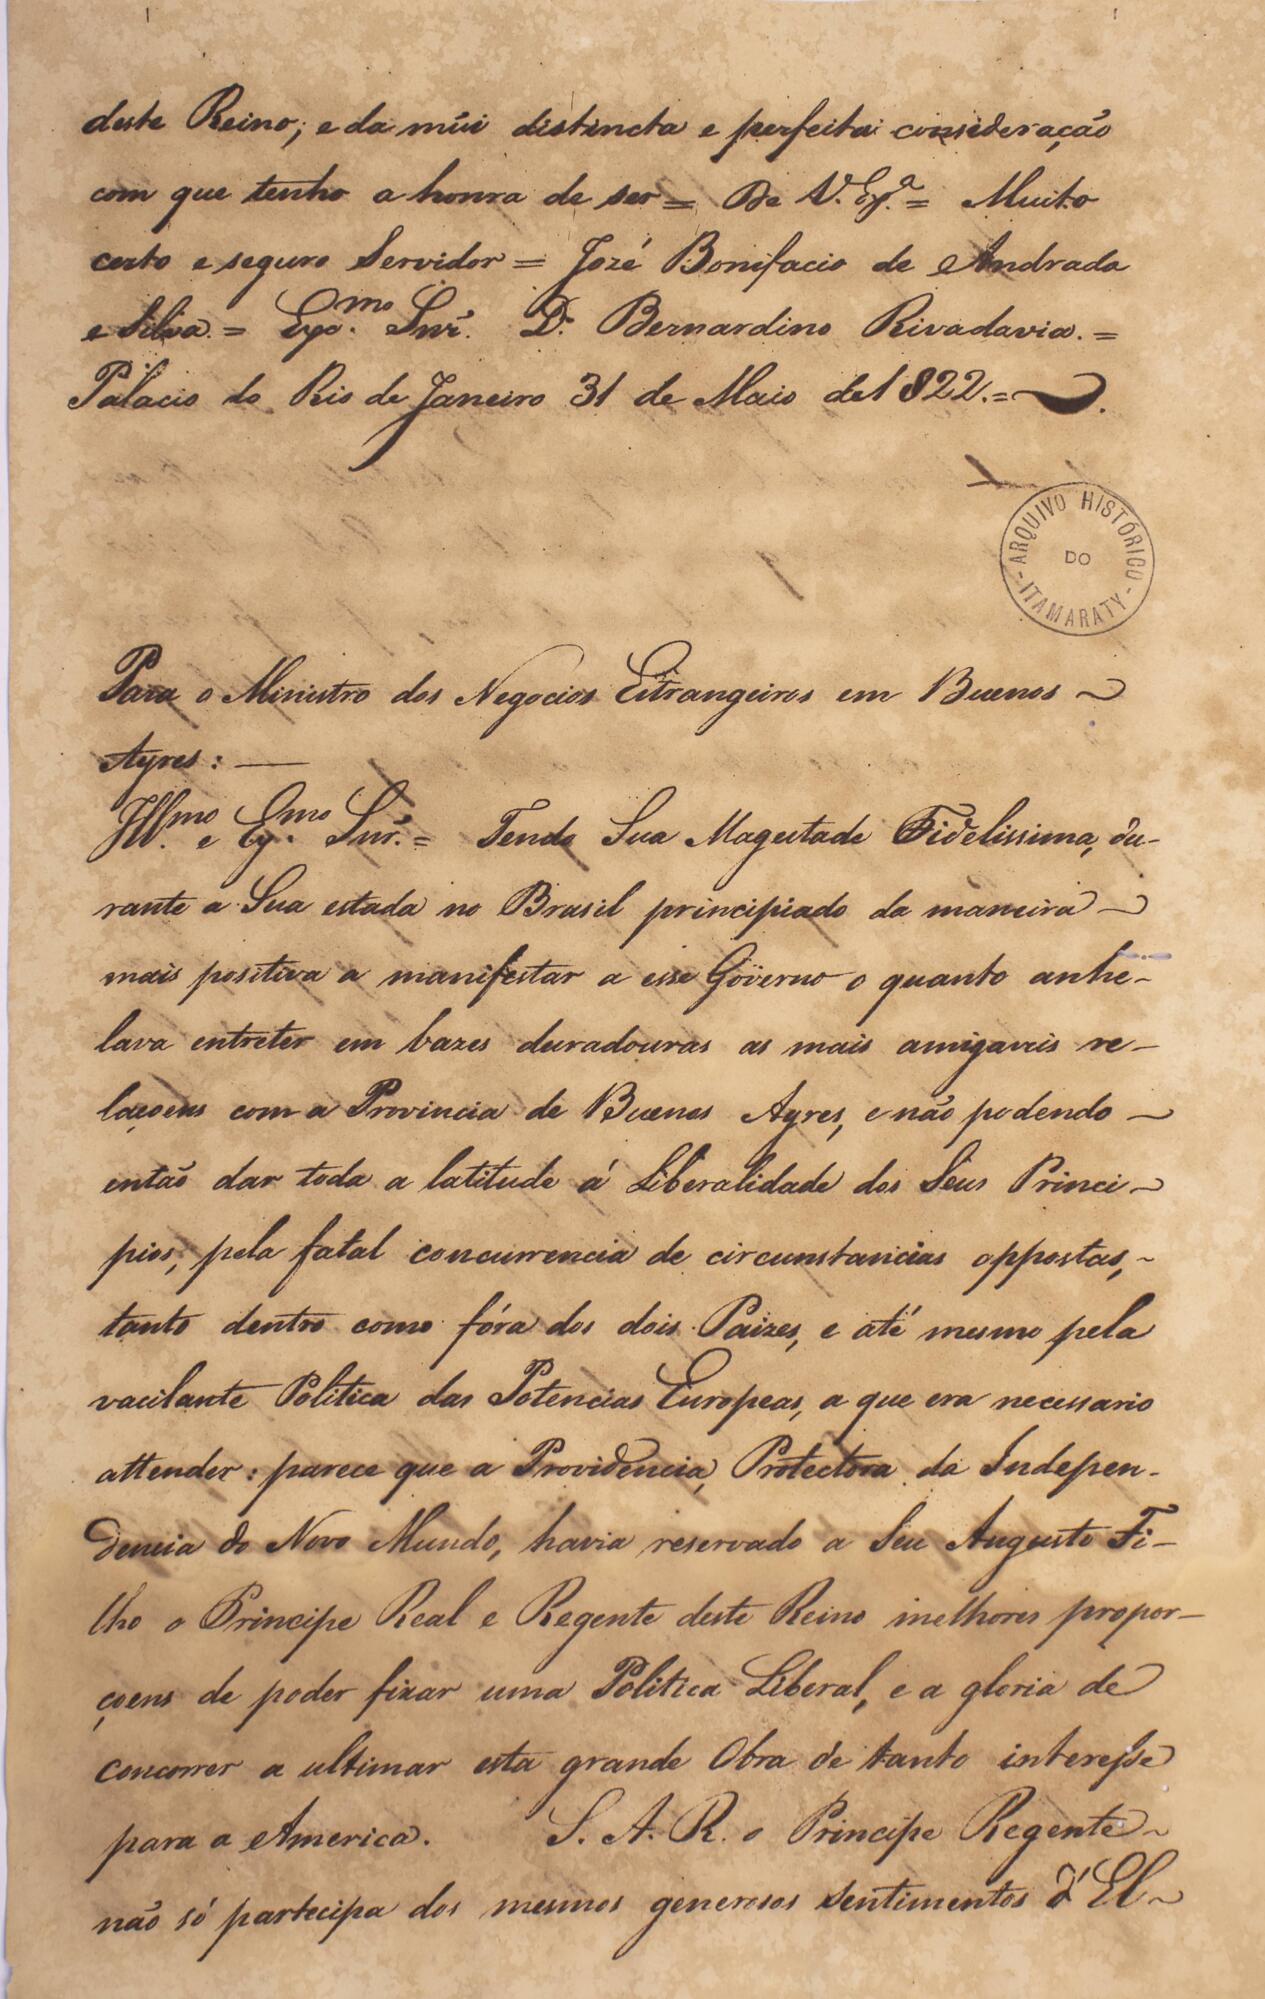 deste Reino; e da mũi distincta e perfeita consideração
com que tenho a honra de ser = De V. Ex.ª = Muito
certo e seguro Servidor = Jozé Bonifacio de Andrada
e Silva. = Exc.mo Snr̃. D. Bernardino Rivadavia. =
Palacio do Rio de Janeiro 31 de Maio de 1822. =
ARQUIVO HISTÓRICO
DO
- ITAMARATY -
Para o Ministro dos Negocios Estrangeiros em Buenos
Ayres : —
Ill.mo e Ex.mo Snr̃. = Tendo Sua Magestade Fidelissima, du-
rante a Sua estada no Brasil principiado da maneira
mais positiva a manifestar a esse Governo o quanto anhe-
lava entreter em bazes duradouras as mais amigaveis re-
laçoens com a Provincia de Buenos Ayres, e não podendo
então dar toda a latitude á Liberalidade dos Seus Princi-
pios, pela fatal concurrencia de circunstancias oppostas,
tanto dentro como fóra dos dois Paizes, e até mesmo pela
vacilante Politica das Potencias Europeas, a que era necessario
attender : parece que a Providencia, Protectora da Indepen-
dencia do Novo Mundo, havia reservado a Seu Augusto Fi-
lho o Principe Real e Regente deste Reino melhores propor-
çoens de poder fixar uma Politica Liberal, e a gloria de
concorrer a ultimar esta grande Obra de tanto interesse
para a America. S. A. R. o Principe Regente
não só partecipa dos mesmos generosos sentimentos d'El-